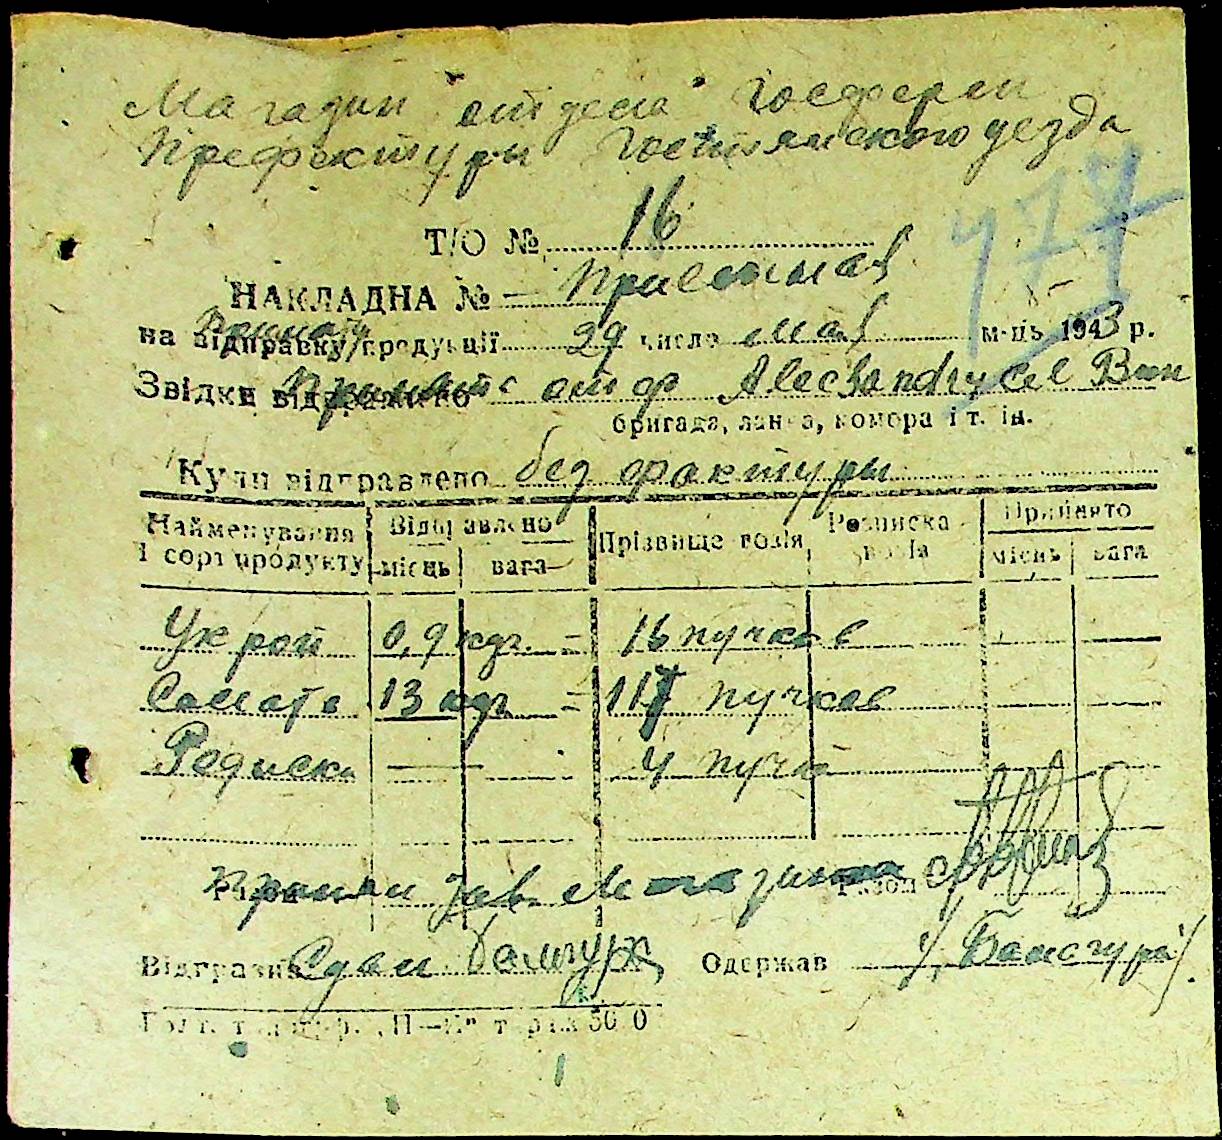 Магазин отдела Госферм
Префектуры Голтянского уезда
477
Т/О № 16
НАКЛАДНА № — Приемная
на відправку продукції 29 число мая м-ць 1943 р.
Звідки відправлено от ф Alecsandrucel Вин
бригада, ланка, комора і т. ін.
Куди відправлено без фактуры
Найменування і сорт продукту Відправлено Прізвище возія Розписка возія Прийнято
місць вага місць вага
Укроп 0,9 кгр. = 16 пучков
Салата 13 кгр = 117 пучков
Редиска — 4 пучк
Принял зав. Магазина Разом
Відправив Сдал Одержав